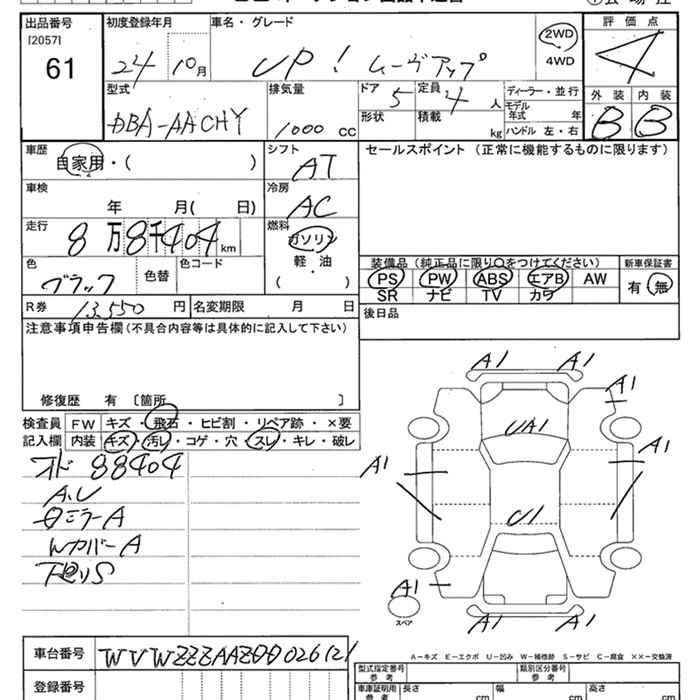 出品番号 初度登録年月 車名・グレード 2WD 4WD 評価点
[2057]
61 24 10月 UP! ムーヴアップ 4
型式 排気量 ドア 5 定員 4人 ディーラー・並行 外装 内装
モデル年式 年
DBA-AACHY 1000 CC 形状 積載 kg ハンドル 左・右 B B
車歴 シフト セールスポイント (正常に機能するものに限ります)
自家用・( ) AT
車検 冷房
年 月( 日) AC
走行 燃料
8万8千404km ガソリン
軽・油
( )
色 色替 色コード
ブラック
装備品 (純正品に限り○をつけてください) 新車保証書
PS PW ABS エアB AW 有・無
SR ナビ TV カワ
R券 13,550円 名変期限 月 日 後日品
注意事項申告欄(不具合内容等は具体的に記入して下さい)
修復歴 有 〔箇所 〕
検査員 FW キズ・飛石・ヒビ割・リペア跡・×要
記入欄 内装 キズ・汚レ・コゲ・穴・スレ・キレ・破レ
オド 88404
A.U
日ミラーA
WカバーA
下回りS
A1 A1
A1
UA1
A1 A1
U1
A1
スペア
A1 A1
A-キズ E-エクボ U-凹み W-補修跡 S-サビ C-腐食 XX-交換済
車台番号 WVWZZZAAZDD026121
登録番号
型式指定番号 参考 類別区分番号 参考
車庫証明用 参考 長さ cm 幅 cm 高さ cm